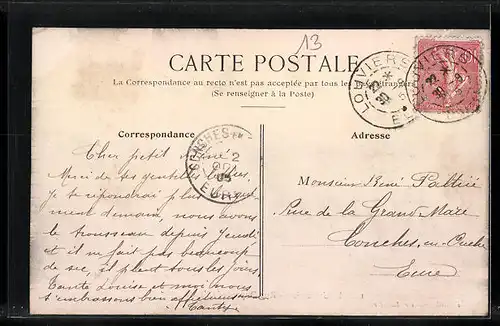 13
CARTE POSTALE
La Correspondance au recto n'est pas acceptée par tous les pays étrangers
(Se renseigner à la Poste)
LOUVIERS
EURE
Correspondance
Adresse
CONCHES
EURE
Cher petit aimé
Merci de tes gentilles
je te répondrai plus
ment demain, nous avons
le trousseau depuis Jeudi
et il ne fait pas beaucoup
de sec, il pleut tous les jours
Tante Louise et moi nous
t'embrassons bien affectueusement
Monsieur René
Rue de la Grande Mare
Conches-en-Ouche
Eure